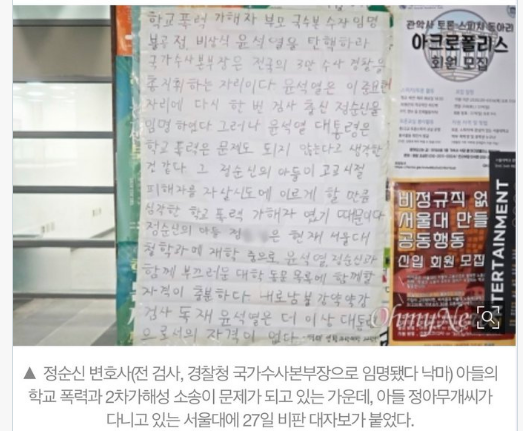 학교폭력 가해자 부모 국수본 수장 임명
불공정 비상식 윤석열을 탄핵하라
국가수사본부장은 전국의 3만 수사 경찰을
총지휘하는 자리이다 윤석열은 이
자리에 다시 한 번 검사 출신 정순신을
임명하였다 그러나 윤석열 대통령은
학교 폭력은 문제도 되지 않는다고 생각한
것 같다 그 정순신의 아들이 고교시절
피해자를 자살시도에 이르게 할 만큼
심각한 학교폭력 가해자 였기 때문이다
정순신의 아들 정 은 현재 서울대
철학과에 재학 중으로 윤석열 정순신과
함께 부끄러운 대학 동문 목록에 함께할
자격이 충분하다 내로남불
검사 독재 윤석열은 더 이상 대통령
으로서의 자격이 없다
관악사 토론·스피치 동아리
아크로폴리스
회원 모집
비정규직 없
서울대 만들
공동행동
신입 회원 모집
ENTERTAINMENT
OhmyNews
▲ 정순신 변호사(전 검사, 경찰청 국가수사본부장으로 임명됐다 낙마) 아들의
학교 폭력과 2차가해성 소송이 문제가 되고 있는 가운데, 아들 정아무개씨가
다니고 있는 서울대에 27일 비판 대자보가 붙었다.